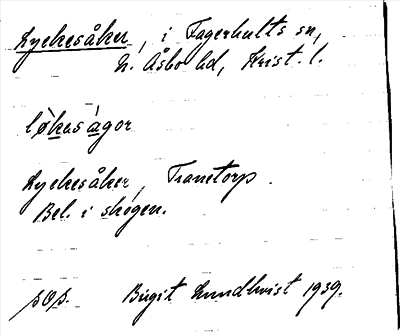 Lyckesåker, i Fagerhults sn,
N. Åsbo hd, Krist. l.
løkasågor
Lyckesåker, Tranetorp.
Bel. i skogen.
pop. Birgit Lundkvist 1939.